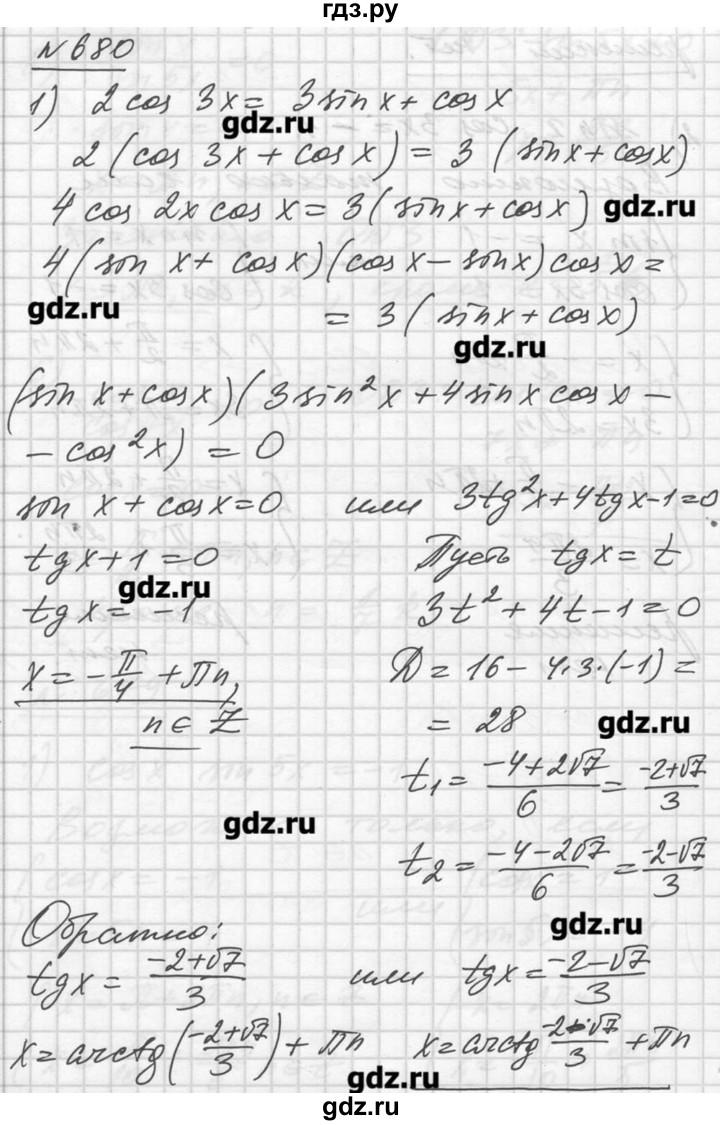 гдз.ру
№680
1) 2 cos 3x = 3 sin x + cos x
gdz.ru
2 (cos 3x + cos x) = 3 (sin x + cos x)
4 cos 2x cos x = 3 (sin x + cos x) gdz.ru
4 (sin x + cos x)(cos x - sin x) cos x =
gdz.ru
= 3 (sin x + cos x)
gdz.ru
(sin x + cos x)(3 sin² x + 4 sin x cos x -
- cos² x) = 0
sin x + cos x = 0 или 3tg²x + 4tg x - 1 = 0
tg x + 1 = 0 Пусть tg x = t
gdz.ru
tg x = -1 3t² + 4t - 1 = 0
x = -π/4 + πn, D = 16 - 4·3·(-1) =
n ∈ Z = 28 gdz.ru
t₁ = (-4+2√7)/6 = (-2+√7)/3
gdz.ru
t₂ = (-4-2√7)/6 = (-2-√7)/3
Обратно: gdz.ru
tg x = (-2+√7)/3 или tg x = (-2-√7)/3
x = arctg((-2+√7)/3) + πn x = arctg (-2-√7)/3 + πn
gdz.ru
gdz.ru